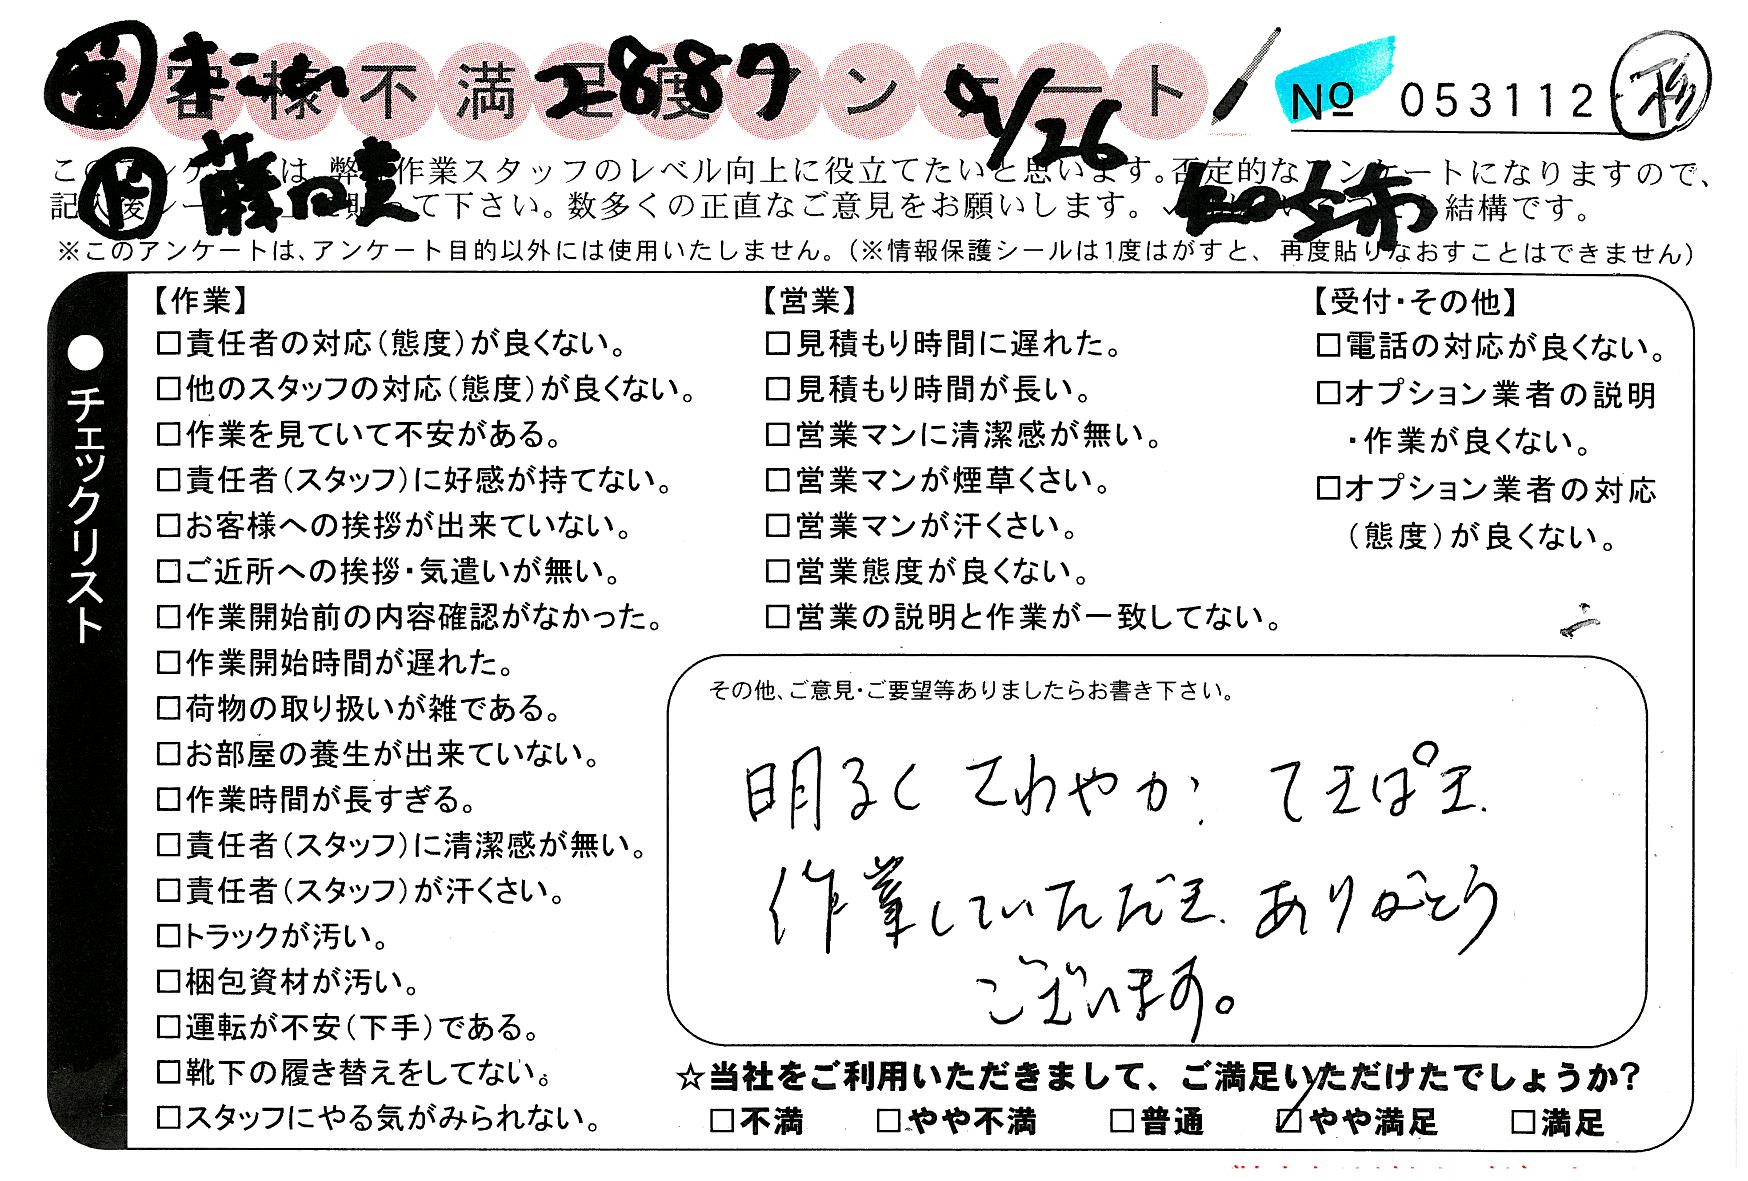 お客様不満足度アンケート
2887
9/26
No 053112
このアンケートは、弊社作業スタッフのレベル向上に役立てたいと思います。否定的なアンケートになりますので、
記入後シールを上に貼って下さい。数多くの正直なご意見をお願いします。 結構です。
※このアンケートは、アンケート目的以外には使用いたしません。(※情報保護シールは1度はがすと、再度貼りなおすことはできません)
●チェックリスト
【作業】
□責任者の対応(態度)が良くない。
□他のスタッフの対応(態度)が良くない。
□作業を見ていて不安がある。
□責任者(スタッフ)に好感が持てない。
□お客様への挨拶が出来ていない。
□ご近所への挨拶・気遣いが無い。
□作業開始前の内容確認がなかった。
□作業開始時間が遅れた。
□荷物の取り扱いが雑である。
□お部屋の養生が出来ていない。
□作業時間が長すぎる。
□責任者(スタッフ)に清潔感が無い。
□責任者(スタッフ)が汗くさい。
□トラックが汚い。
□梱包資材が汚い。
□運転が不安(下手)である。
□靴下の履き替えをしてない。
□スタッフにやる気がみられない。
【営業】
□見積もり時間に遅れた。
□見積もり時間が長い。
□営業マンに清潔感が無い。
□営業マンが煙草くさい。
□営業マンが汗くさい。
□営業態度が良くない。
□営業の説明と作業が一致してない。
【受付・その他】
□電話の対応が良くない。
□オプション業者の説明
・作業が良くない。
□オプション業者の対応
(態度)が良くない。
その他、ご意見・ご要望等ありましたらお書き下さい。
明るく さわやか、てきぱき、
作業していただき、ありがとう
ございます。
☆当社をご利用いただきまして、ご満足いただけたでしょうか?
□不満 □やや不満 □普通 ☑やや満足 □満足